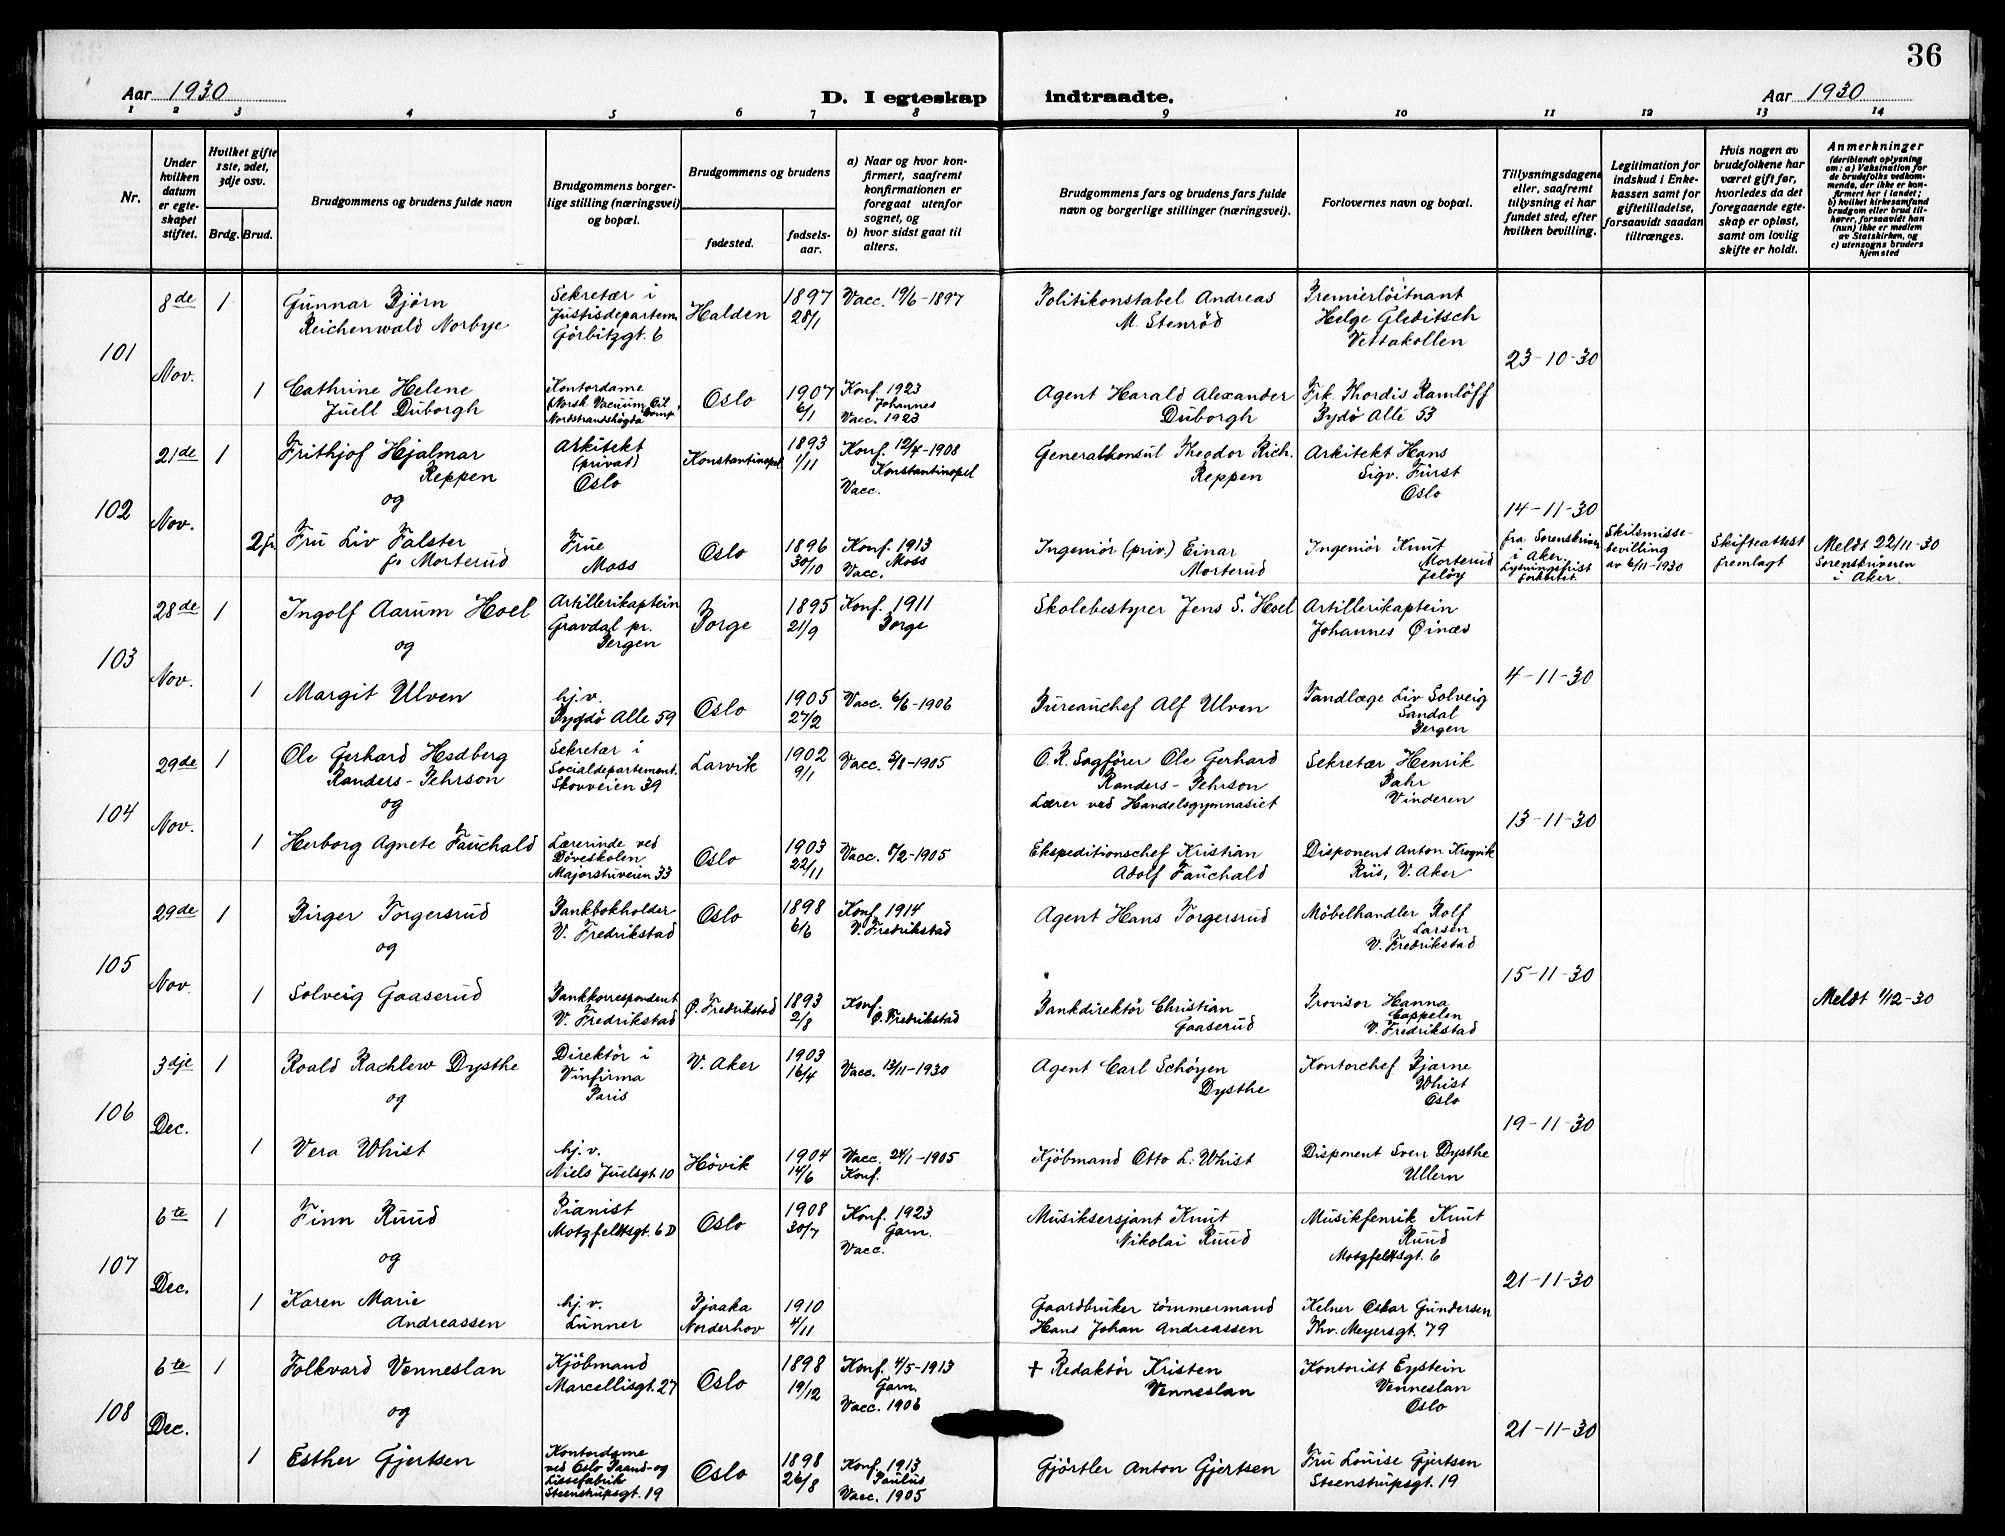 36
Aar 1930
D. I egteskap indtraadte.
Aar 1930
1 2 3 4 5 6 7 8 9 10 11 12 13 14
Nr.
Under hvilken datum er egte-skapet stiftet.
Hvilket gifte 1ste, 2det, 3dje osv.
Brdg. Brud.
Brudgommens og brudens fulde navn
Brudgommens borger-lige stilling (næringsvei) og bopæl.
Brudgommens og brudens
fødested.
fødsels-aar.
a) Naar og hvor kon-firmert, saafremt konfirmationen er foregaat utenfor sognet, og
b) hvor sidst gaat til alters.
Brudgommens fars og brudens fars fulde navn og borgerlige stillinger (næringsvei).
Forlovernes navn og bopæl.
Tillysningsdagene eller, saafremt tillysning ei har fundet sted, efter hvilken bevilling.
Legitimation for indskud i Enke-kassen samt for giftetilladelse, forsaavidt saadan tiltrænges.
Hvis nogen av brudefolkene har været gift før, hvorledes da det foregaaende egte-skap er opløst, samt om lovlig skifte er holdt.
Anmerkninger
(deriblandt oplysning om: a) Vaksination for de brudefolks vedkom-mende, der ikke er kon-firmert her i landet;
b) hvilket kirkesamfund brudgom eller brud til-hører, forsaavidt han (hun) ikke er medlem av Statskirken, og
c) utensogns bruders hjemsted
101
8de Nov.
1
Gunnar Bjørn
Reichenwald Norbye
Sekretær i
Justisdepartem.
Górbitzgt. 6
Halden
1897
28/1
Vacc. 19/6-1897
Politikonstabel Andreas
M. Stenrød
Premierløitnant
Helge Gleditsch
Vettakollen
23-10-30
1
Cathrine Helene
Juell Duborgh
Kontordame
Norsk Vacuum Oil Comp.
Nordstrandshøgda
Oslo
1907
6/1
Konf. 1923
Johannes
Vacc. 1923
Agent Harald Alexander
Duborgh
Frk. Thordis Ramlöff
Bydø Alle 53
102
21de Nov.
1
Frithjof Hjalmar
Reppen
og
Arkitekt
(privat)
Oslo
Konstantinopel
1893
1/11
Konf. 12/4-1908
Konstantinopel
Vacc.
Generalkonsul Theodor Rich.
Reppen
Arkitekt Hans
Sigv. Fürst
Oslo
14-11-30
2 fr.
Fru Liv Falster
f. Morterud
Frue
Moss
Oslo
1896
30/10
Konf. 1913
Moss
Vacc.
Ingeniør (priv.) Einar
Morterud
Ingeniør Knut
Morterud
Jeløy
fra Sorenskriver
i Aker.
Lysningsfrist
forkortet.
Skilsmisse-
bevilling
av 6/11-1930
Skifteattest
fremlagt
Meldt 22/11-30
Sorenskriveren
i Aker
103
28de Nov.
1
Ingolf Aarum Hoel
og
Artillerikaptein
Gravdal pr.
Bergen
Borge
1895
21/9
Konf. 1911
Borge
Skolebestyrer Jens S. Hoel
Artillerikaptein
Johannes Øinæs
4-11-30
1
Margit Ulven
hj.v.
Bygdø Alle 59
Oslo
1905
27/2
Vacc. 6/6-1906
Bureauchef Alf Ulven
Tandlæge Liv Solveig
Sandal
Bergen
104
29de Nov.
1
Ole Gerhard Hedberg
Randers-Pehrson
og
Sekretær i
Socialdepartement.
Skovveien 39
Larvik
1902
9/1
Vacc. 5/8-1905
O.R. Sagfører Ole Gerhard
Randers-Pehrson
Lærer ved Handelsgymnasiet
Sekretær Henrik
Bahr
Vinderen
13-11-30
1
Herborg Agnete Fauchald
Lærerinde ved
Døveskolen
Majorstuveien 33
Oslo
1903
22/11
Vacc. 8/2-1905
Ekspeditionschef Kristian
Adolf Fauchald
Disponent Anton Krogvik
Riis, V. Aker
105
29de Nov.
1
Birger Torgersrud
og
Bankbokholder
V. Fredrikstad
Oslo
1898
6/6
Konf. 1914
V. Fredrikstad
Agent Hans Torgersrud
Møbelhandler Rolf
Larsen
V. Fredrikstad
15-11-30
1
Solveig Gaaserud
Bankkorrespondent
V. Fredrikstad
Ø. Fredrikstad
1893
2/8
Konf.
Ø. Fredrikstad
Bankdirektør Christian
Gaaserud
Provisor Hanna
Cappelen
V. Fredrikstad
Meldt 1/12-30
106
3dje Dec.
1
Roald Rachlew Dysthe
og
Direktør i
Vinfirma
Paris
V. Aker
1903
16/4
Vacc. 13/11-1930
Agent Carl Schøyen
Dysthe
Kontorchef Bjarne
Whist
Oslo
19-11-30
1
Vera Whist
hj.v.
Niels Juelsgt. 10
Høvik
1904
14/6
Vacc. 24/1-1905
Konf.
Kjøbmand Otto L. Whist
Disponent Sven Dysthe
Ullern
107
6te Dec.
1
Finn Ruud
og
Pianist
Motzfeldtsgt. 6 D
Oslo
1908
30/7
Konf. 1923
Garn.
Vacc.
Musiksersjant Knut
Nikolai Ruud
Musikfenrik Knut
Ruud
Motzfeldtsgt. 6
21-11-30
1
Karen Marie
Andreassen
hj.v.
Lunner
Bjaaka
Norderhov
1910
4/11
Gaardbruker tømmermand
Hans Johan Andreassen
Kelner Oskar Gundersen
Thv. Meyersgt. 79
108
6te Dec.
1
Folkvard Venneslan
og
Kjøbmand
Marcellisgt. 27
Oslo
1898
19/12
Konf. 4/5-1913
Garn.
Vacc. 1906
+ Redaktør Kristen
Venneslan
Kontorist Eystein
Venneslan
Oslo
21-11-30
1
Esther Gjertsen
Kontordame
ved Oslo Baand- og
Lissefabrik
Steenstrupsgt. 19
Oslo
1898
26/8
Konf. 1913
Paulus
Vacc. 1905
Gjørtler Anton Gjertsen
Fru Louise Gjertsen
Steenstrupsgt. 19